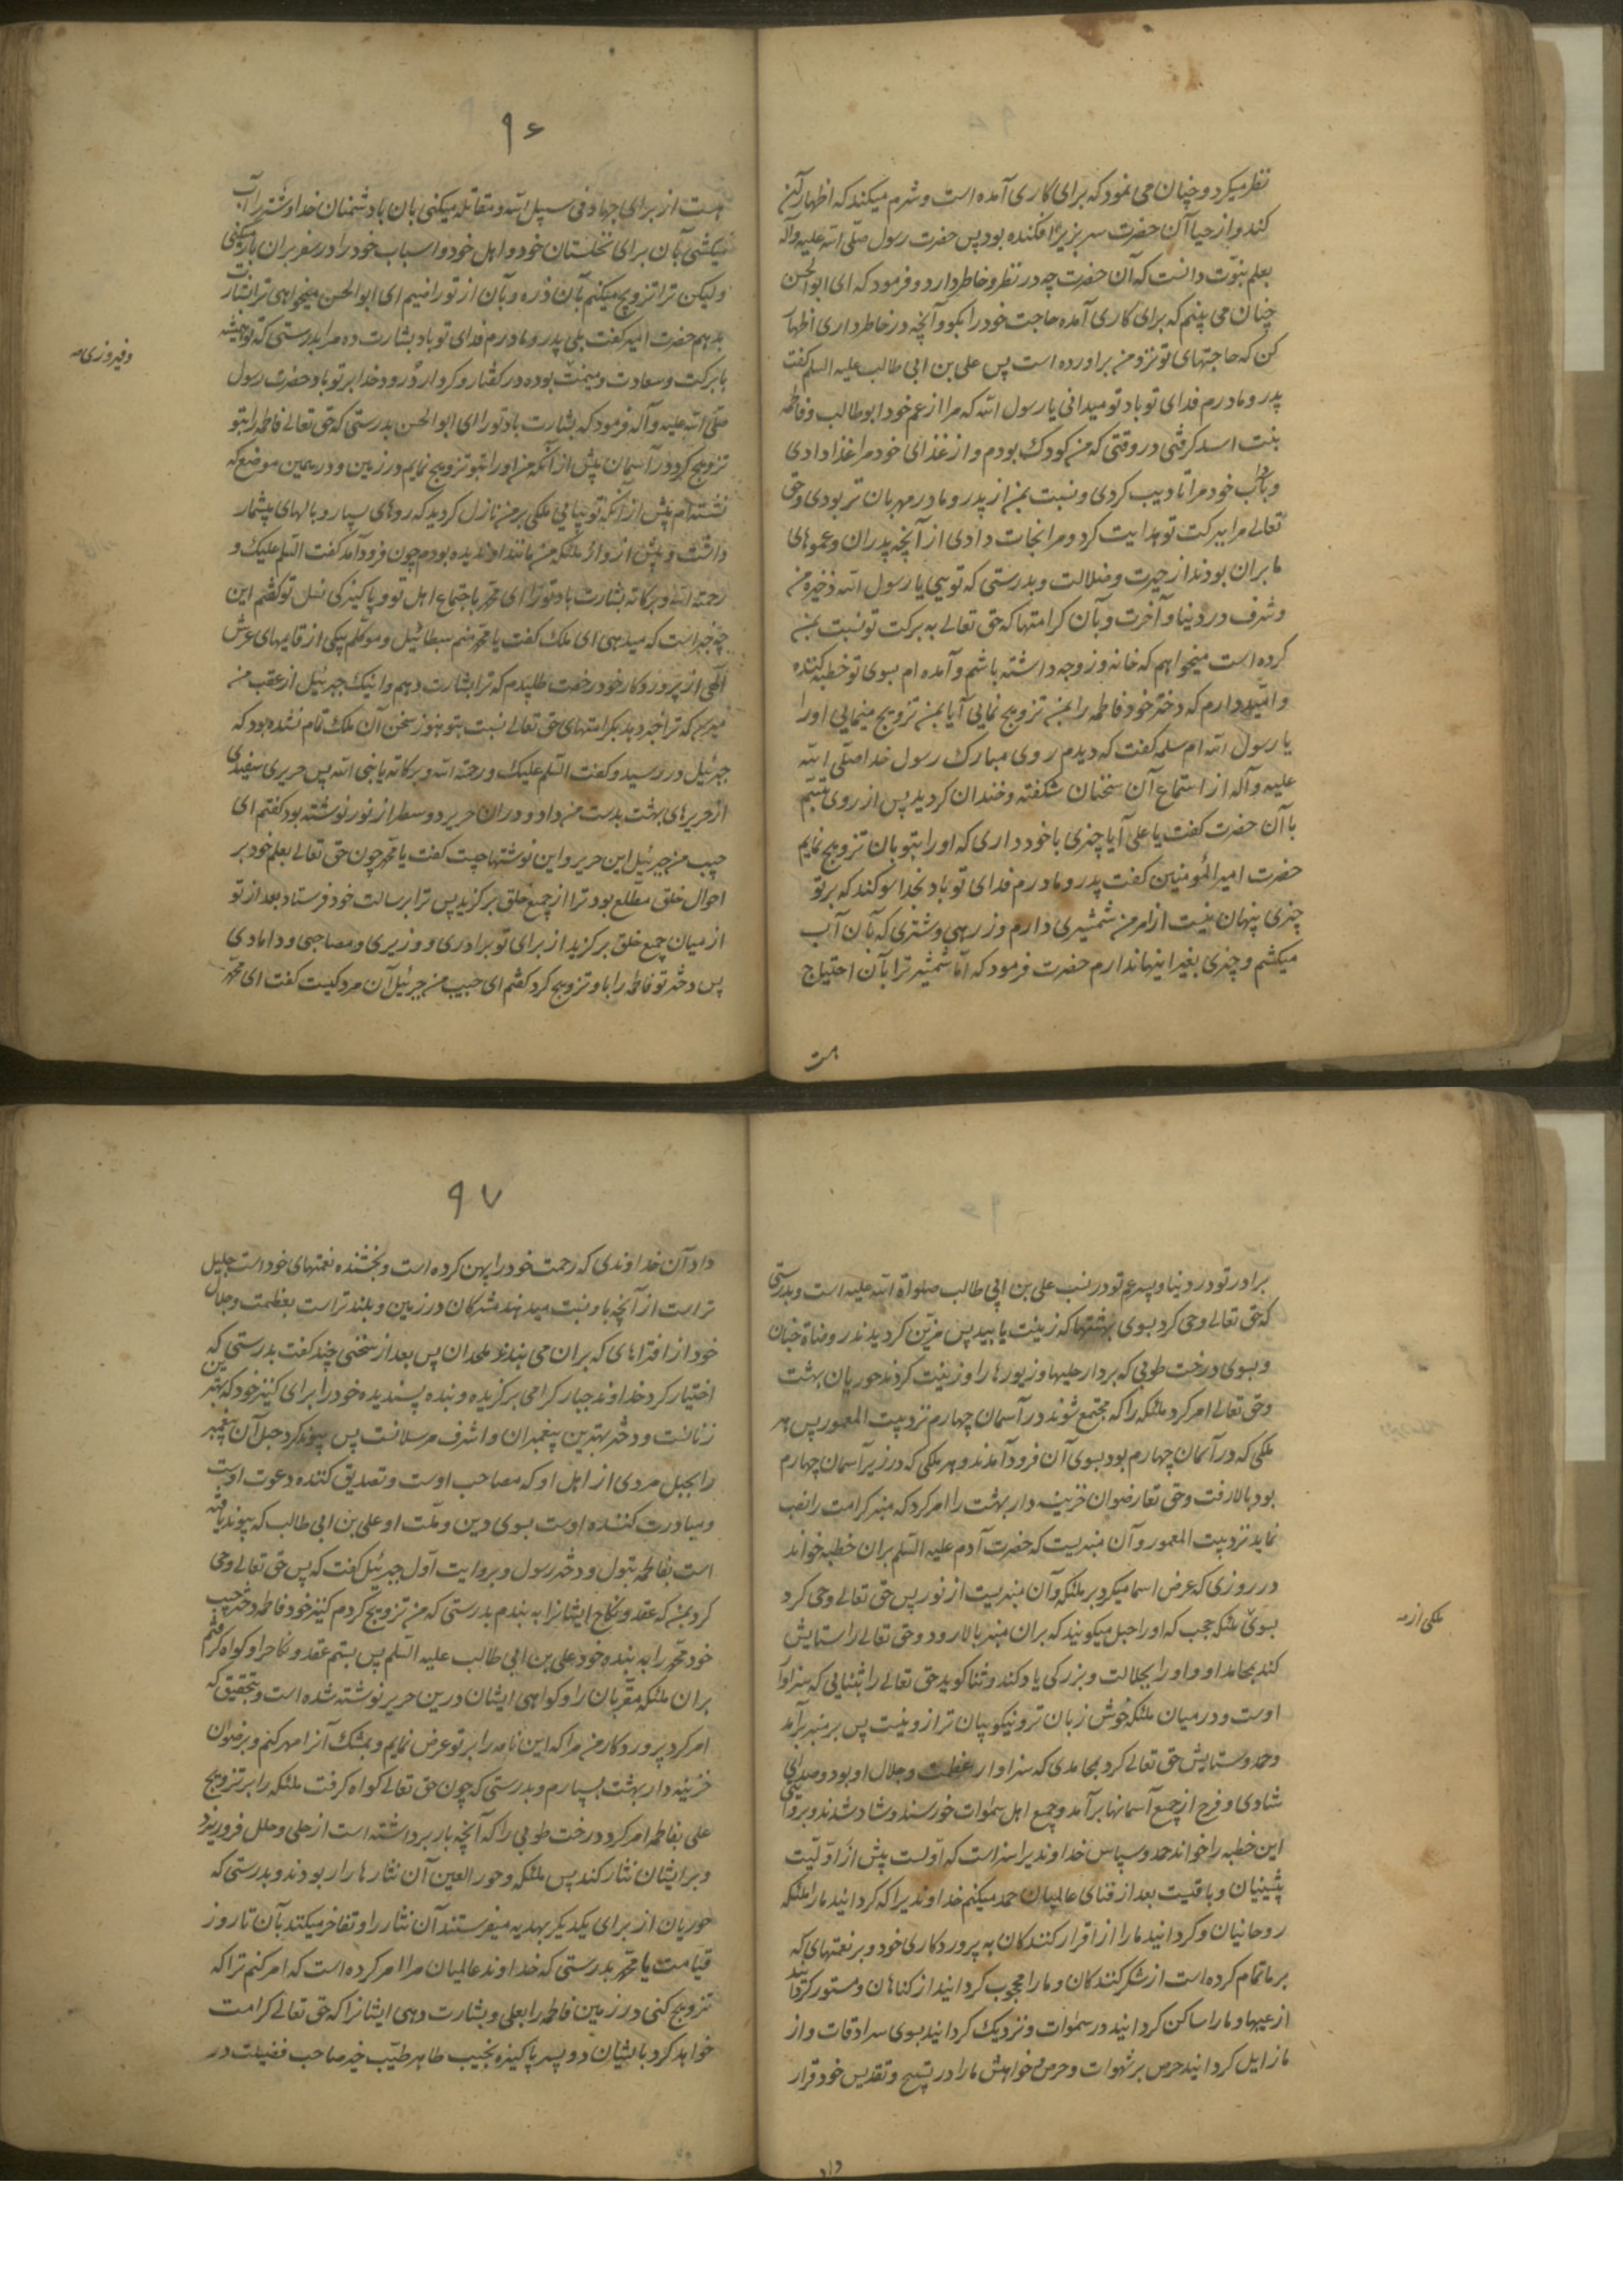 نظر میکرد و چنان می نمود که برای کاری آمده است و شرم میکند که اظهار آن
کند و از حیا آن حضرت سر بزیر افکنده بود پس حضرت رسول صلی الله علیه وآله
بعلم نبوت دانست که آن حضرت چه در نظر و خاطر دارد و فرمود که ای ابو الحسن
چنان می بینم که برای کاری آمده حاجت خود را بکو و آنچه در خاطر داری اظهار
کن که حاجتهای تو نزد من براورده است پس علی بن ابی طالب علیه السلم کفت
پدر و مادرم فدای تو باد تو میدانی یا رسول الله که مرا از عم خود ابو طالب و فاطمه
بنت اسد کرفتی در وقتی که من کودک بودم و از غذای خود مرا غذا دادی
و باداب خود مرا تادیب کردی و نسبت بمن از پدر و مادر مهربان تر بودی و حق
تعالی مرا ببرکت تو هدایت کرد و مرا نجات دادی از آنچه پدران و عموهای
ما بران بودند از حیرت و ضلالت و بدرستی که تویی یا رسول الله ذخیره من
و شرف در دنیا و آخرت و بآن کرامتها که حق تعالی به برکت تو نسبت بمن
کرده است میخواهم که خانه و زوجه داشته باشم و آمده ام بسوی تو خطبه کننده
و امیدوارم که دختر خود فاطمه را بمن تزویج نمایی آیا بمن تزویج مینمایی او را
یا رسول الله ام سلمه کفت که دیدم روی مبارک رسول خدا صلی الله
علیه و آله از استماع آن سخنان شکفته و خندان کردید پس از روی تبسم
با آن حضرت کفت یا علی آیا چیزی با خود داری که او را بتو بان تزویج نمایم
حضرت امیر المؤمنین کفت پدر و مادرم فدای تو باد بخدا سوکند که بر تو
چیزی پنهان نیست از امر من شمشیری دارم و زرهی و شتری که بآن آب
میکشم و چیزی بغیر اینها ندارم حضرت فرمود که اما شمشیر ترا بآن احتیاج
هست
۹۶
هست از برای جهاد فی سبیل الله و مقاتله میکنی بان با دشمنان خدا و شتر را آب
میکشی بآن برای نخلستان خود و اهل خود و اسباب خود را در سفر بران بار میکنی
و لیکن ترا تزویج میکنم بآن ذره و بآن از تو راضیم ای ابو الحسن میخواهی ترا بشارت
بدهم حضرت امیر کفت بلی پدر و مادرم فدای تو باد بشارت ده مرا بدرستی که تو همیشه
با برکت و سعادت و میمنت بوده در کفتار و کردار درود خدا بر تو باد حضرت رسول
و فیروزی
صلی الله علیه و آله فرمود که بشارت باد تو را ای ابو الحسن بدرستی که حق تعالی فاطمه را بتو
تزویج کرد در آسمان پیش از آنکه من او را بتو تزویج نمایم در زمین و در همین موضع که
نشسته ام پیش از آنکه تو بیایی ملکی بر من نازل کردید که روهای بسیار و بالهای بیشمار
داشت و پیش از و از ملئکه من مانند او ندیده بودم چون فرود آمد کفت السلم علیک و
رحمة الله و برکاته بشارت باد تو را ای محمد باجتماع اهل تو و پاکیزکی نسل تو کفتم این
چه خبر است که میدهی ای ملک کفت یا محمد منم سبطائیل و موکلم بیکی از قایمهای عرش
الهی از پروردکار خود رخصت طلبیدم که ترا بشارت دهم و اینک جبرئیل از عقب من
میرسد که ترا خبر دهد بکرامتهای حق تعالی نسبت بتو هنوز سخن آن ملک تمام نشده بود که
جبرئیل در رسید و کفت السلم علیک و رحمة الله و برکاته یا نبی الله پس حریری سفیدی
از حریرهای بهشت بدست من داد و دران حریر دو سطر از نور نوشته بود کفتم ای
حبیب من جبرئیل این حریر و این نوشتها چیست کفت یا محمد چون حق تعالی بعلم خود بر
احوال خلق مطلع بود ترا از جمیع خلق برکزید پس ترا برسالت خود فرستاد بعد از تو
از میان جمیع خلق برکزید از برای تو برادری و وزیری و مصاحبی و دامادی
پس دختر تو فاطمه را باو تزویج کرد کفتم ای حبیب من جبرئیل آن مرد کیست کفت ای محمد
برادر تو در دنیا و پسر عم تو در نسب علی بن ابی طالب صلواة الله علیه است و بدرستی
که حق تعالی وحی کرد بسوی بهشتها که زینت یابید پس مزین کردیدند روضات جنان
و بسوی درخت طوبی که بردار حلیها و زیورها را و زینت کردند حوریان بهشت
و حق تعالی امر کرد ملئکه را که مجتمع شوند در آسمان چهارم نزد بیت المعمور پس هر
ملکی که در آسمان چهارم بود بسوی آن فرود آمدند و هر ملکی که در زیر آسمان چهارم
بود بالا رفت و حق تعا رضوان خزینه دار بهشت را امر کرد که منبر کرامت را نصب
نماید نزد بیت المعمور و آن منبریست که حضرت آدم علیه السلم بران خطبه خواند
در روزی که عرض اسما میکرد بر ملئکه و آن منبریست از نور پس حق تعالی وحی کرد
بسوی ملئکه حجب که او را حبل میکویند که بران منبر بالا رود و حق تعالی را ستایش
ملکی از
کند بمحامد او و او را بجلالت و بزرکی یاد کند و ثنا کوید حق تعالی را بثنایی که سزاوار
اوست و در میان ملئکه خوش زبان تر و نیکو بیان تر ازو نیست پس بر منبر برآمد
و حمد و ستایش حق تعالی کرد بمحامدی که سزاوار عظمت و جلال او بود و صدای
شادی و فرح از جمیع آسمانها برآمد و جمیع اهل سموات خورسند و شاد شدند و بروایتی
این خطبه را خواند حمد و سپاس خداوندیرا سزاست که اولست پیش از اولیت
پیشینیان و باقیست بعد از فنای عالمیان حمد میکنم خداوندیرا که کردانید ما را ملئکه
روحانیان و کردانید ما را از اقرار کنندکان به پروردکاری خود و بر نعمتهای که
بر ما تمام کرده است از شکر کنندکان و ما را محجوب کردانید از کناهان و مستور کردانید
از عیبها و ما را ساکن کردانید در سموات و نزدیک کردانید بسوی سرادقات و از
ما زایل کردانید حرص بر شهوات و حرص و خواهش ما را در تسبیح و تقدیس خود قرار
داد
۹۷
داد آن خداوندی که رحمت خود را پهن کرده است و بخشنده نعمتهای خود است جلیل
تر است از آنچه باو نسبت میدهند مشرکان در زمین و بلند تر است بعظمت و جلال
خود از افتراهای که بران می بندند ملحدان پس بعد از سخنی چند کفت بدرستی که
اختیار کرد خداوند جبار کرامی برکزیده و بنده پسندیده خود را برای کنیز خود که بهترین
زنانست و دختر بهترین پیغمبران و اشرف مرسلانست پس پیوند کرد حبل آن پیغمبر
را بحبل مردی از اهل او که مصاحب اوست و تصدیق کننده دعوت اوست
و مبادرت کننده اوست بسوی دین و ملت او علی بن ابی طالب که پیوند یافته
است بفاطمه بتول و دختر رسول و بروایت اول جبرئیل کفت که پس حق تعالی وحی
کرد بمن که عقد و نکاح ایشانرا به بندم بدرستی که من تزویج کردم کنیز خود فاطمه دختر حبیب
خود محمد را به بنده خود علی بن ابی طالب علیه السلم پس بستم عقد و نکاح را و کواه کرفتم
بران ملئکه مقربان را و کواهی ایشان درین حریر نوشته شده است و بتحقیق که
امر کرد پروردکار من مرا که این نامه را بر تو عرض نمایم و بمشک آنرا مهر کنم و برضوان
خزینه دار بهشت بسپارم و بدرستی که چون حق تعالی کواه کرفت ملئکه را بر تزویج
علی بفاطمه امر کرد درخت طوبی را که آنچه بار برداشته است از حلی و حلل فرو ریزد
و بر ایشان نثار کند پس ملئکه و حور العین آن نثارها را ربودند و بدرستی که
حوریان از برای یکدیکر بهدیه میفرستند آن نثار را و تفاخر میکنند بآن تا روز
قیامت یا محمد بدرستی که خداوند عالمیان مرا امر کرده است که امر کنم ترا که
تزویج کنی در زمین فاطمه را بعلی و بشارت دهی ایشانرا که حق تعالی کرامت
خواهد کرد بایشان دو پسر پاکیزه نجیب طاهر طیب خیر صاحب فضیلت در